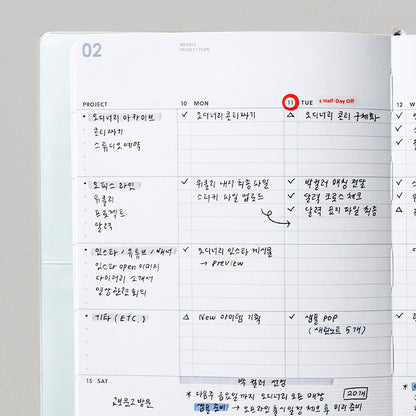 02
WEEKLY
PROJECT PLAN
PROJECT
10 MON
11 TUE
Half-Day Off
12 W
오디너리 아카이브
콘티짜기
스튜디오예약
✓ 오디너리 콘티짜기
△ 오디너리 콘티 구체화
오피스 라인
위클리
프로젝트
달력
✓ 위클리 내지 최종파일
스티커 파일 업로드
✓ 박컬러 매칭 전달
✓ 달력 코류스 체크
✓ 달력 표지 파일 최종
인스타 / 유튜브 / 배너
인스타 open 이미지
다이어리 소개서
영상관련 회의
✓ 오디너리 인스타 게시물
→ preview
기타 (ETC.)
△ New 아이템 기획
✓ 샘플 POP
(새원노트 5개)
15 SAT
박 컬러 선정
* 다음주 금요일까지 오디너리 오픈 예정
20개
샘플 준비 → 오프라인 출시일정 체크 후 미리 준비